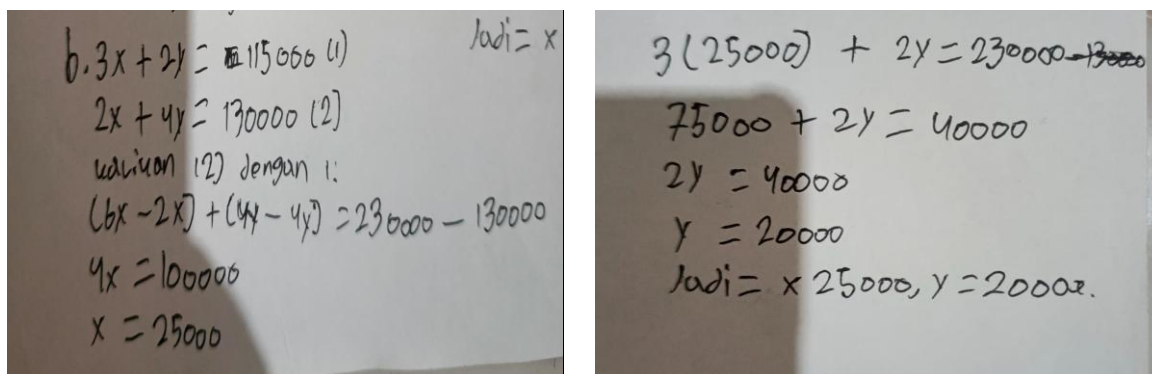 b. 3x + 2y = 115000 (1)
Jadi = x
2x + 4y = 130000 (2)
kalikan (2) dengan 1:
(6x - 2x) + (4y - 4y) = 230000 - 130000
4x = 100000
x = 25000
3 (25000) + 2y = 230000
75000 + 2y = 40000
2y = 40000
y = 20000
Jadi = x 25000, y = 20000.